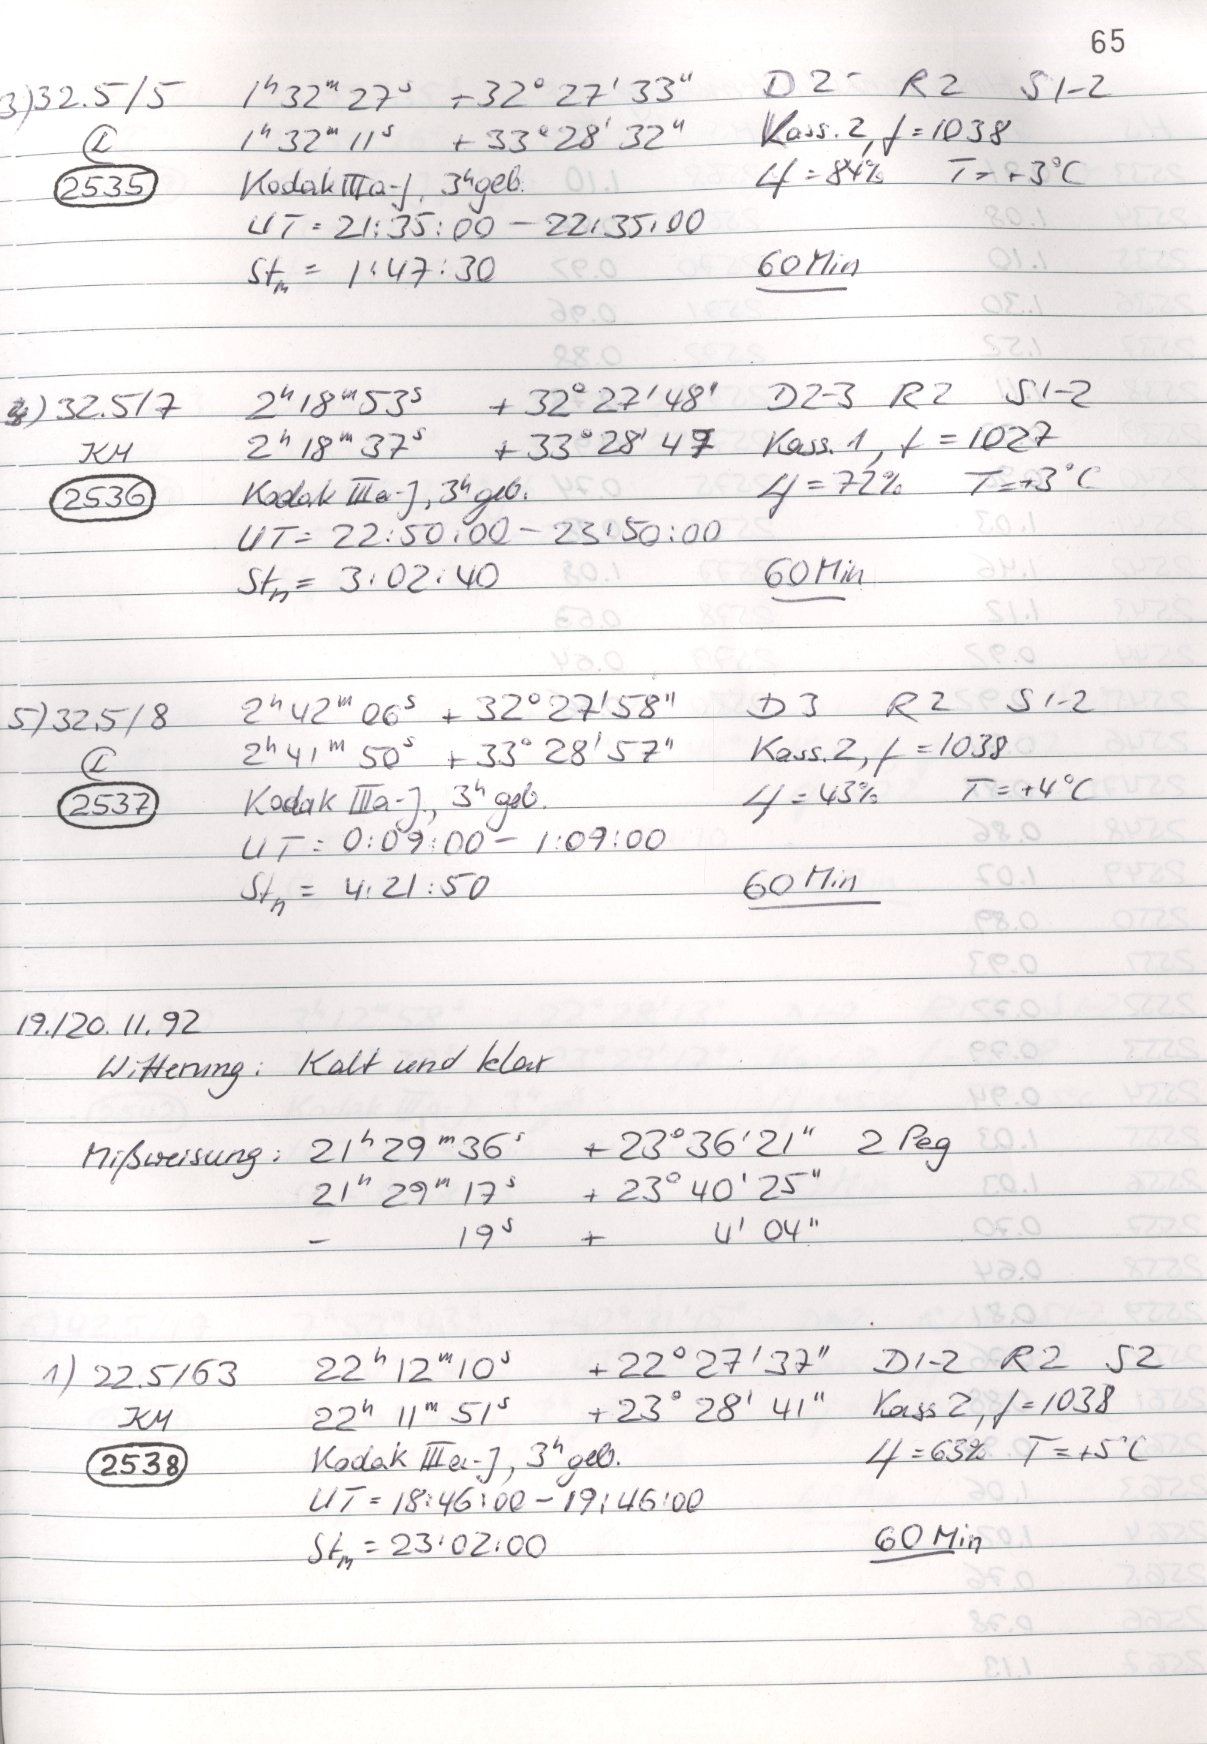 65
3) 32.5/5 1ʰ32ᵐ27ˢ +32°27'33" D2- R2 S1-2
1ʰ32ᵐ11ˢ +33°28'32" Kass. 2, f=1038
2535 Kodak IIIa-J, 3ʰ geb. =84% T=+3°C
UT=21:35:00-22:35:00
Stₘ= 1:47:30 60 Min
4) 32.5/7 2ʰ18ᵐ53ˢ +32°27'48' D2-3 R2 S1-2
KM 2ʰ18ᵐ37ˢ +33°28'47 Kass. 1, f=1027
2536 Kodak IIIa-J, 3ʰ geb. =72% T=+3°C
UT=22:50:00-23:50:00
Stₘ= 3:02:40 60 Min
5) 32.5/8 2ʰ42ᵐ06ˢ +32°27'58" D3 R2 S1-2
2ʰ41ᵐ50ˢ +33°28'57" Kass. 2, f=1038
2537 Kodak IIIa-J, 3ʰ geb. =43% T=+4°C
UT=0:09:00-1:09:00
Stₘ= 4:21:50 60 Min
19./20. 11. 92
Witterung: Kalt und klar
Mißweisung: 21ʰ29ᵐ36ˢ +23°36'21" 2 Peg
21ʰ29ᵐ17ˢ +23°40'25"
- 19ˢ + 4'04"
1) 22.5/63 22ʰ12ᵐ10ˢ +22°27'37" D1-2 R2 S2
KM 22ʰ11ᵐ51ˢ +23°28'41" Kass 2, f=1038
2538 Kodak IIIa-J, 3ʰ geb. =63% T=+5°C
UT=18:46:00-19:46:00
Stₘ=23:02:00 60 Min